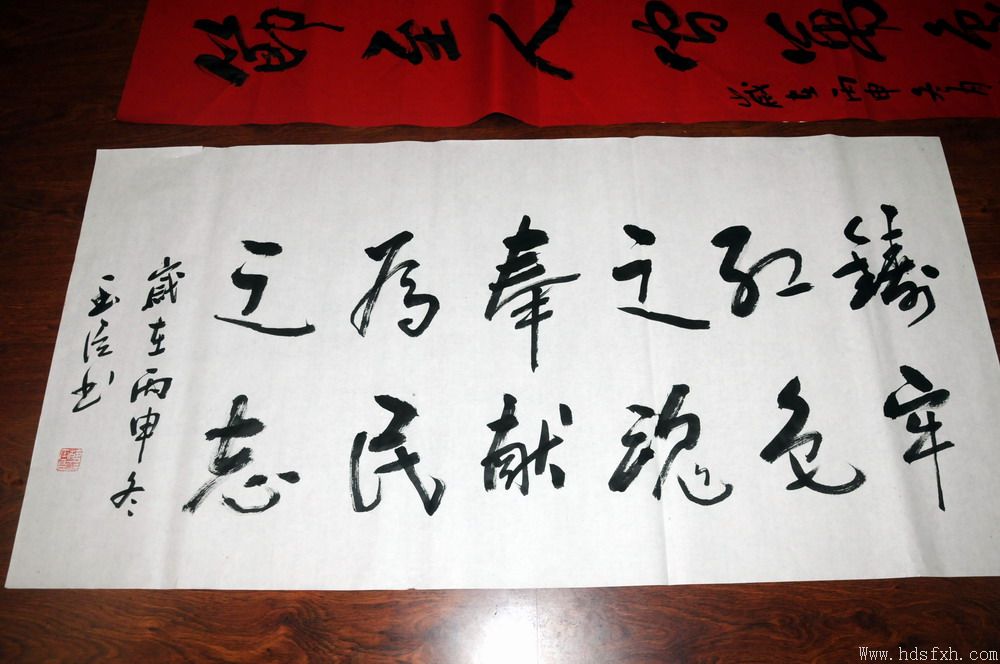 铸牢
红色
之魂
奉献
为民
之志
岁在丙申冬
玉信书
岁在丙申六月
Www.hdsfxh.com